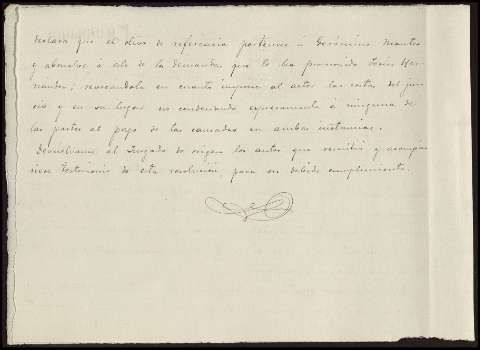 declara que el olivo de referencia pertenece á Gerónimo Montes
y absuelve á este de la demanda que le ha promovido Jesús Her-
nandez; revocándola en cuanto impone al actor las costas del jui-
cio y en su lugar no condenando expresamente á ninguna de
las partes al pago de las causadas en ambas instancias.
Devuélvanse al Juzgado de origen los autos que remitió y acompáñ
ese testimonio de esta resolución, para su debido cumplimiento.